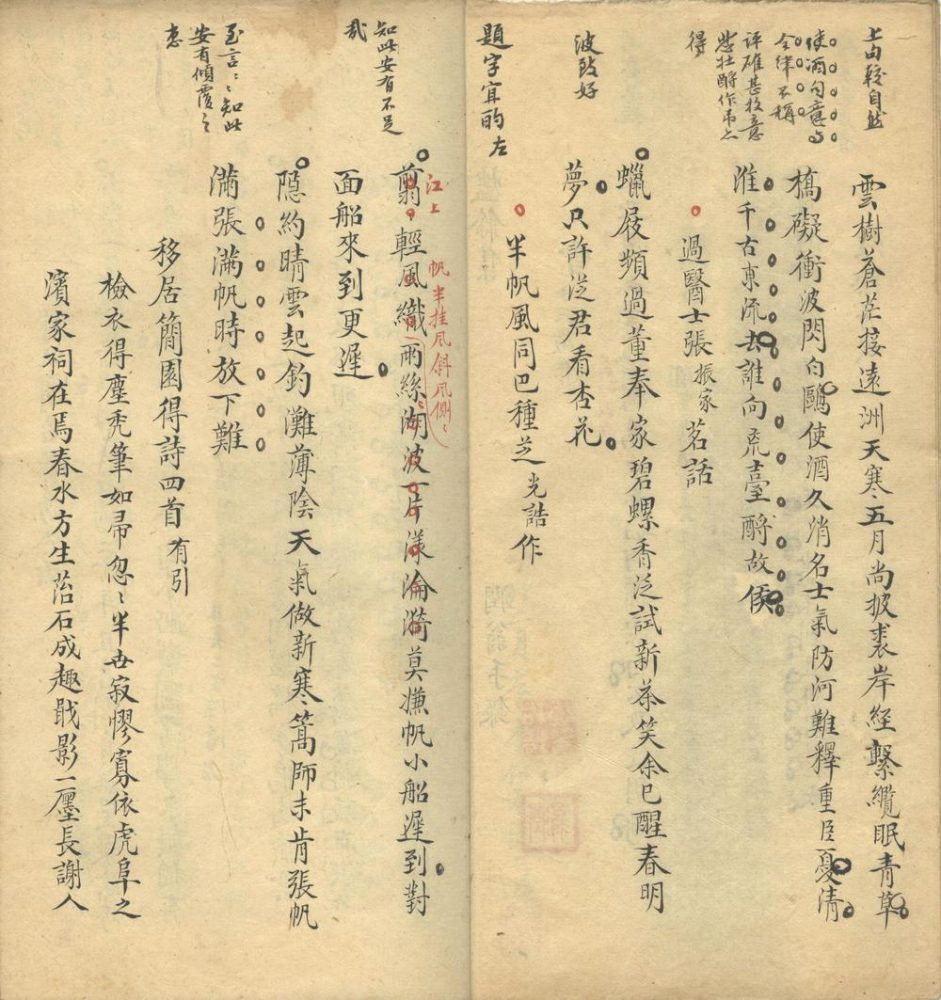 上句較自然
使酒句意与
全律不稱
評確甚
得
雲樹蒼茫接遠洲天寒五月尚披裘岸經繫纜眠青草
橋礙衝波閃白鷗使酒久消名士氣防河難釋重臣憂清
淮千古東流去誰向荒臺酹故侯
過醫士張振家茗話
波致好
蠟屐頻過董奉家碧螺香泛試新茶笑余已醒春明
夢只許從君看杏花
題字宜酌 左
半帆風同巴種芝光誥作
知此安有不足
哉
江上
帆半挂風斜風側〻
翦〻輕風織雨絲湖波一片漾淪漪莫嫌帆小船遲到對
面船來到更遲
至言〻〻知此
安有傾覆之
患
隱約晴雲起釣灘薄陰天氣做新寒篙師未肯張帆
滿張滿帆時放下難
移居簡園得詩四首有引
檢衣得塵禿筆如帚忽〻半世寂憀寡依虎阜之
濱家祠在焉春水方生菭石成趣戢影一廛長謝人